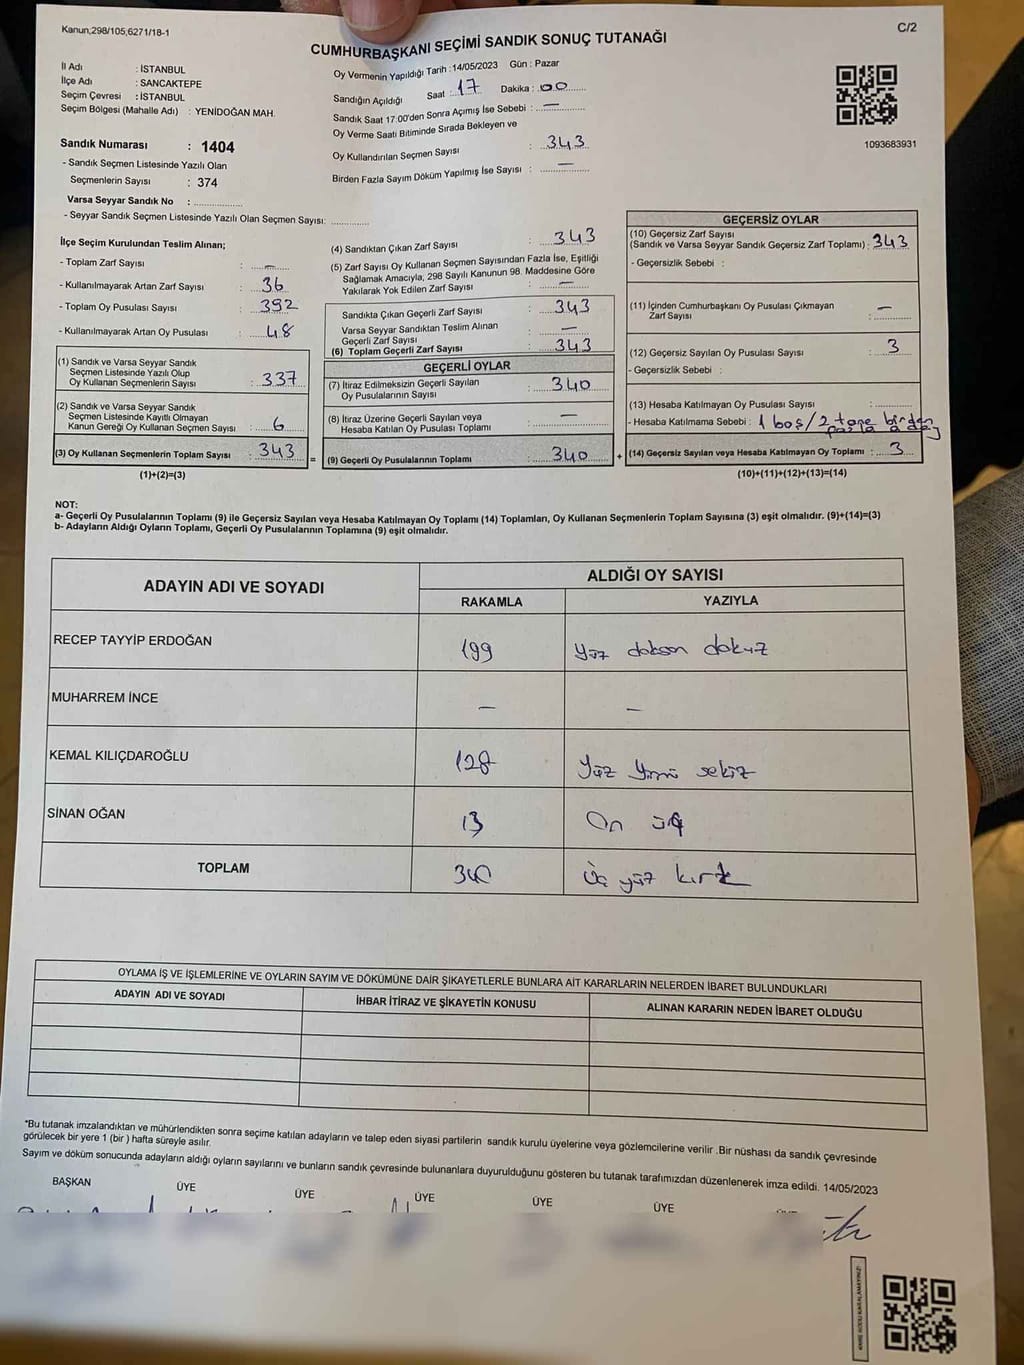 Kanun;298/105,6271/18-1
C/2
CUMHURBAŞKANI SEÇİMİ SANDIK SONUÇ TUTANAĞI
İl Adı : İSTANBUL
İlçe Adı : SANCAKTEPE
Seçim Çevresi : İSTANBUL
Seçim Bölgesi (Mahalle Adı) : YENİDOĞAN MAH.
Sandık Numarası : 1404
- Sandık Seçmen Listesinde Yazılı Olan
Seçmenlerin Sayısı : 374
Varsa Seyyar Sandık No :
- Seyyar Sandık Seçmen Listesinde Yazılı Olan Seçmen Sayısı:
Oy Vermenin Yapıldığı Tarih :14/05/2023 Gün : Pazar
Sandığın Açıldığı Saat : 17 Dakika : 00
Sandık Saat 17:00'den Sonra Açımış İse Sebebi : —
Oy Verme Saati Bitiminde Sırada Bekleyen ve
Oy Kullandırılan Seçmen Sayısı : 343
Birden Fazla Sayım Döküm Yapılmış İse Sayısı : —
1093683931
İlçe Seçim Kurulundan Teslim Alınan;
- Toplam Zarf Sayısı : —
- Kullanılmayarak Artan Zarf Sayısı : 36
- Toplam Oy Pusulası Sayısı : 392
- Kullanılmayarak Artan Oy Pusulası : 48
(1) Sandık ve Varsa Seyyar Sandık
Seçmen Listesinde Yazılı Olup
Oy Kullanan Seçmenlerin Sayısı : 337
(2) Sandık ve Varsa Seyyar Sandık
Seçmen Listesinde Kayıtlı Olmayan
Kanun Gereği Oy Kullanan Seçmen Sayısı : 6
(3) Oy Kullanan Seçmenlerin Toplam Sayısı : 343
(1)+(2)=(3)
(4) Sandıktan Çıkan Zarf Sayısı : 343
(5) Zarf Sayısı Oy Kullanan Seçmen Sayısından Fazla İse, Eşitliği
Sağlamak Amacıyla, 298 Sayılı Kanunun 98. Maddesine Göre
Yakılarak Yok Edilen Zarf Sayısı : —
Sandıkta Çıkan Geçerli Zarf Sayısı : 343
Varsa Seyyar Sandıktan Teslim Alınan
Geçerli Zarf Sayısı : —
(6) Toplam Geçerli Zarf Sayısı : 343
GEÇERLİ OYLAR
(7) İtiraz Edilmeksizin Geçerli Sayılan
Oy Pusulalarının Sayısı : 340
(8) İtiraz Üzerine Geçerli Sayılan veya
Hesaba Katılan Oy Pusulası Toplamı : —
= (9) Geçerli Oy Pusulalarının Toplamı : 340 +
GEÇERSİZ OYLAR
(10) Geçersiz Zarf Sayısı
(Sandık ve Varsa Seyyar Sandık Geçersiz Zarf Toplamı) : 343
- Geçersizlik Sebebi :
(11) İçinden Cumhurbaşkanı Oy Pusulası Çıkmayan
Zarf Sayısı : —
(12) Geçersiz Sayılan Oy Pusulası Sayısı : 3
- Geçersizlik Sebebi :
(13) Hesaba Katılmayan Oy Pusulası Sayısı :
- Hesaba Katılmama Sebebi : 1 boş / 2 tane birden
fazla aday
(14) Geçersiz Sayılan veya Hesaba Katılmayan Oy Toplamı : 3
(10)+(11)+(12)+(13)=(14)
NOT:
a- Geçerli Oy Pusulalarının Toplamı (9) ile Geçersiz Sayılan veya Hesaba Katılmayan Oy Toplamı (14) Toplamları, Oy Kullanan Seçmenlerin Toplam Sayısına (3) eşit olmalıdır. (9)+(14)=(3)
b- Adayların Aldığı Oyların Toplamı, Geçerli Oy Pusulalarının Toplamına (9) eşit olmalıdır.
ADAYIN ADI VE SOYADI ALDIĞI OY SAYISI
RAKAMLA YAZIYLA
RECEP TAYYİP ERDOĞAN 199 Yüz doksan dokuz
MUHARREM İNCE — —
KEMAL KILIÇDAROĞLU 128 Yüz Yirmi sekiz
SİNAN OĞAN 13 On üç
TOPLAM 340 Üç yüz kırk
OYLAMA İŞ VE İŞLEMLERİNE VE OYLARIN SAYIM VE DÖKÜMÜNE DAİR ŞİKAYETLERLE BUNLARA AİT KARARLARIN NELERDEN İBARET BULUNDUKLARI
ADAYIN ADI VE SOYADI İHBAR İTİRAZ VE ŞİKAYETİN KONUSU ALINAN KARARIN NEDEN İBARET OLDUĞU
*Bu tutanak imzalandıktan ve mühürlendikten sonra seçime katılan adayların ve talep eden siyasi partilerin sandık kurulu üyelerine veya gözlemcilerine verilir .Bir nüshası da sandık çevresinde
görülecek bir yere 1 (bir ) hafta süreyle asılır.
Sayım ve döküm sonucunda adayların aldığı oyların sayılarını ve bunların sandık çevresinde bulunanlara duyurulduğunu gösteren bu tutanak tarafımızdan düzenlenerek imza edildi. 14/05/2023
BAŞKAN ÜYE ÜYE ÜYE ÜYE ÜYE